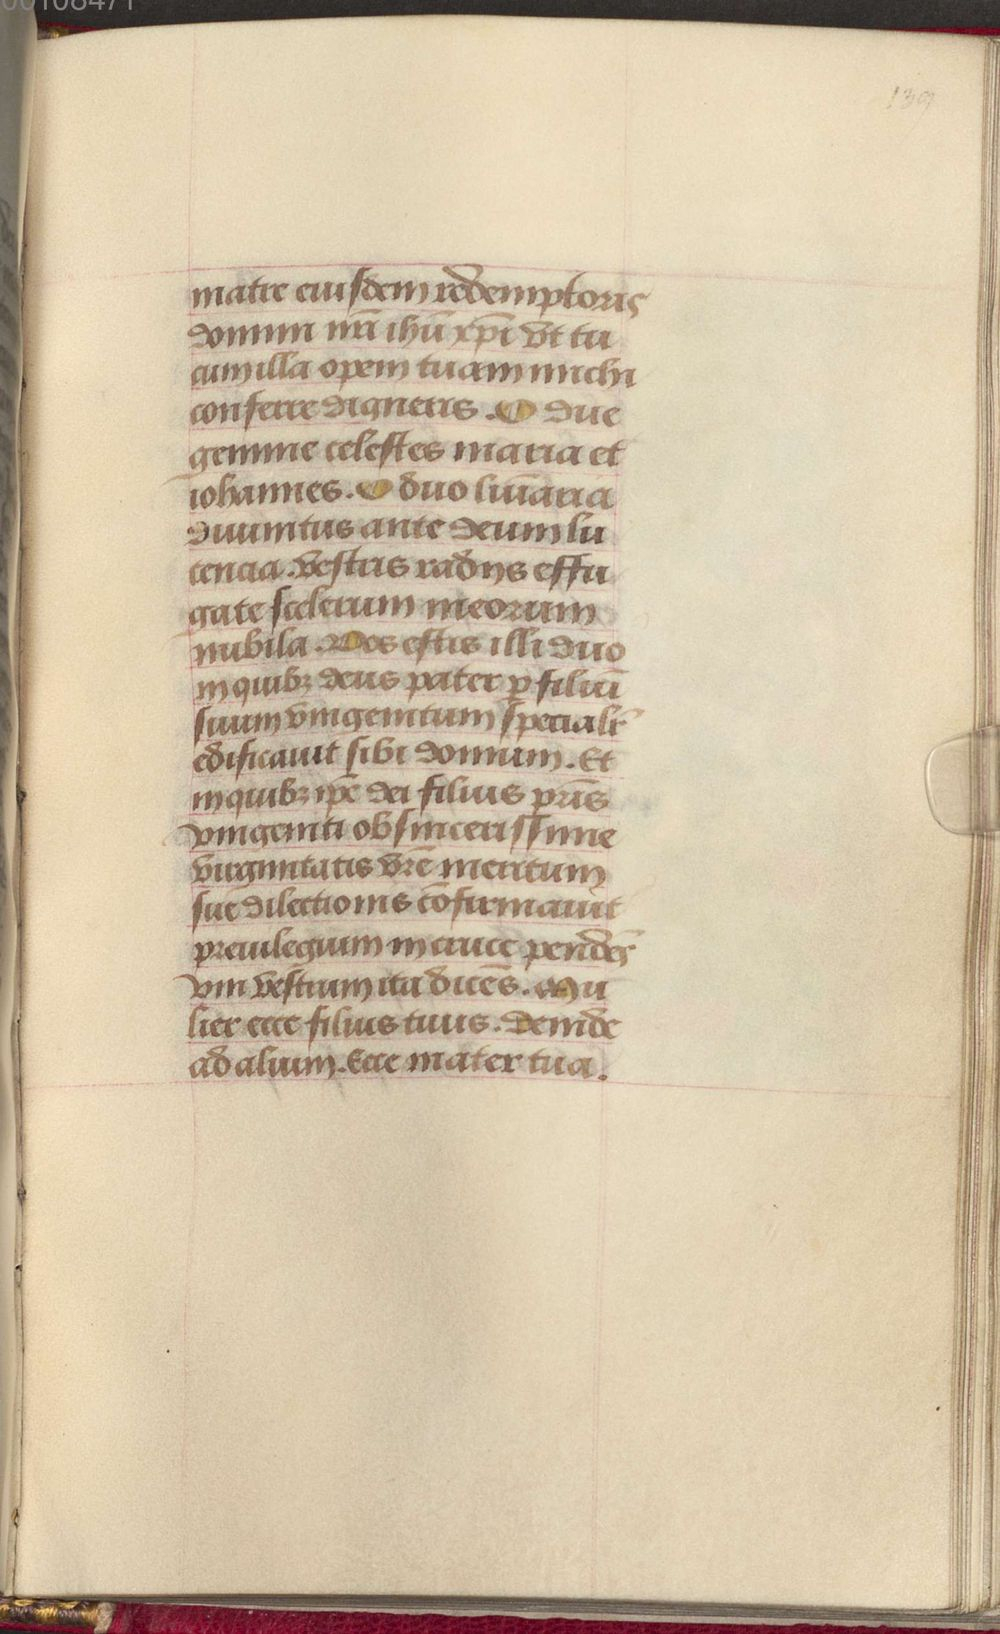 00108471
139
matre eiusdem redemptoris
domini nr̄i ihū xp̄i vt tu
cum illa opem tuam michi
conferre digneris. O due
gemme celestes maria et
iohannes. O duo lum̄aria
diuinitus ante deum lu
cencia. vestris radijs effu
gate scelerum meorum
nubila. Vos estis illi duo
in quibꝫ deus pater ꝑ filiū
suum vnigenitum specialit̄
edificauit sibi domum. Et
in quibꝫ ip̄e dei filius pr̄is
vnigeniti ob sincerissime
virginitatis vr̄e meritum
sue dilectionis cōfirmauit
preuilegium in cruce pendēs
vni vestrum ita dicēs. Mu
lier ecce filius tuus. Deinde
ad alium. Ecce mater tua.